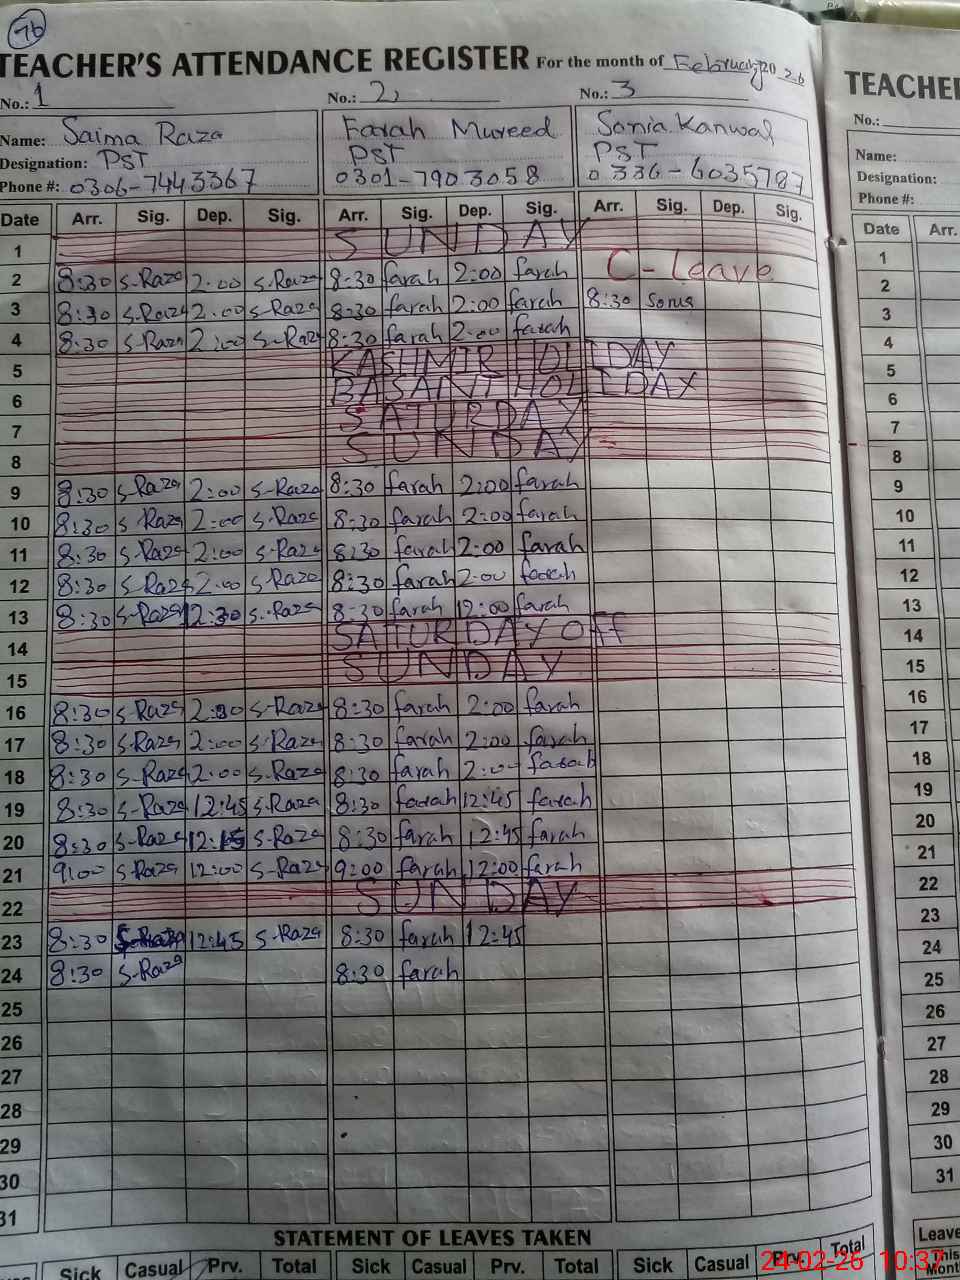 76
TEACHER'S ATTENDANCE REGISTER For the month of February 2026
No.: 1 No.: 2 No.: 3
Name: Saima Raza Farah Mureed Sonia Kanwal
Designation: PST PST PST
Phone #: 0306-7443367 0301-7903058 0336-6035787
Date Arr. Sig. Dep. Sig. Arr. Sig. Dep. Sig. Arr. Sig. Dep. Sig.
1 SUNDAY
2 8:30 S-Raza 2:00 S-Raza 8:30 farah 2:00 farah C-Leave
3 8:30 S-Raza 2:00 S-Raza 8:30 farah 2:00 farah 8:30 Sonia
4 8:30 S-Raza 2:00 S-Raza 8:30 farah 2:00 farah
5 KASHMIR HOLIDAY
6 BASANT HOLIDAY
7 SATURDAY
8 SUNDAY
9 8:30 S-Raza 2:00 S-Raza 8:30 farah 2:00 farah
10 8:30 S-Raza 2:00 S-Raza 8:30 farah 2:00 farah
11 8:30 S-Raza 2:00 S-Raza 8:30 farah 2:00 farah
12 8:30 S-Raza 2:00 S-Raza 8:30 farah 2:00 farah
13 8:30 S-Raza 12:30 S-Raza 8:30 farah 12:00 farah
14 SATURDAY OFF
15 SUNDAY
16 8:30 S-Raza S-Raza 8:30 farah 2:00 farah
17 8:30 S-Raza 2:00 S-Raza 8:30 farah 2:00 farah
18 8:30 S-Raza 2:00 S-Raza 8:30 farah 2:00 farah
19 8:30 S-Raza 12:45 S-Raza 8:30 farah 12:45 farah
20 8:30 S-Raza S-Raza 8:30 farah 12:45 farah
21 9:00 S-Raza 12:00 S-Raza 9:00 farah 12:00 farah
22 SUNDAY
23 8:30 S-Raza 12:45 S-Raza 8:30 farah 12:45
24 8:30 S-Raza 8:30 farah
25
26
27
28
29
30
31
STATEMENT OF LEAVES TAKEN
Sick Casual Prv. Total Sick Casual Prv. Total Sick Casual Prv. Total
TEACHER
No.:
Name:
Designation:
Phone #:
Date Arr.
1
2
3
4
5
6
7
8
9
10
11
12
13
14
15
16
17
18
19
20
21
22
23
24
25
26
27
28
29
30
31
Leave
This
Month
24-02-26 10:37